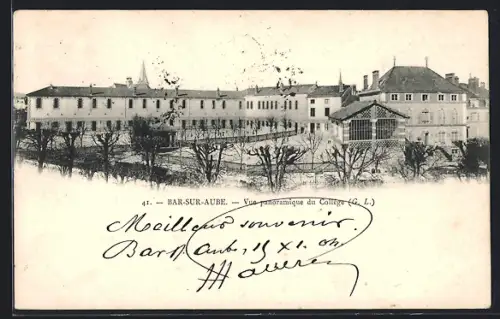 41. — BAR-SUR-AUBE. — Vue panoramique du Collège (G. L.)
Meilleur souvenir.
Bar s/ Aube, 15 XI. 04